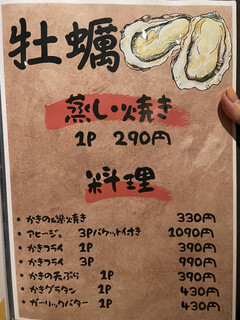 牡蠣
蒸し・焼き
1P 290円
料理
・かきの塩焼き 330円
・アヒージョ 3Pバケット付き 1090円
・かきフライ 1P 390円
・かきフライ 3P 990円
・かきの天ぷら 1P 390円
・かきグラタン 1P 430円
・ガーリックバター 1P 430円